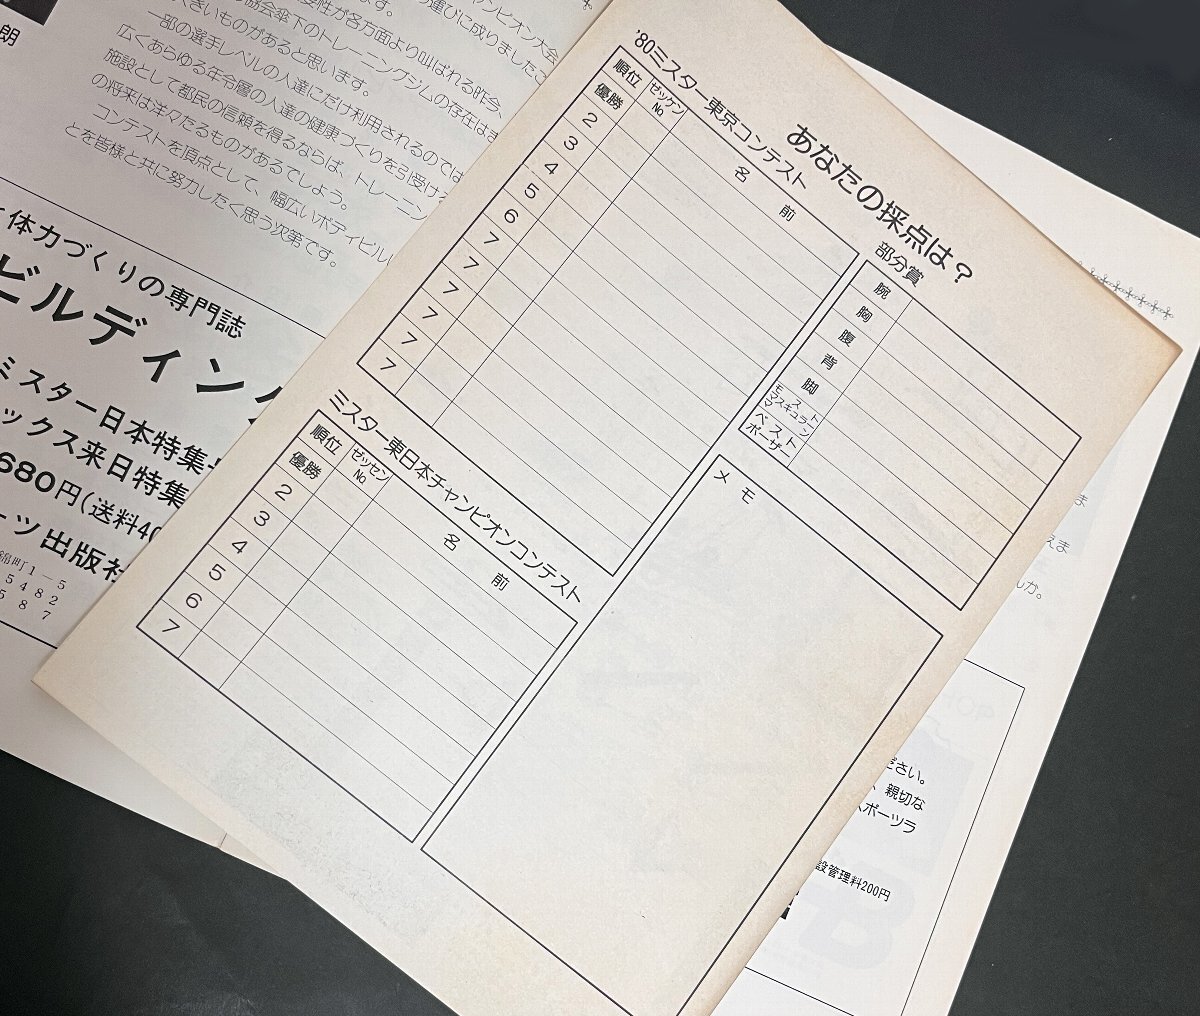 あなたの採点は?
'80ミスター東京コンテスト
順位 ゼッケンNo 名 前
優勝
2
3
4
5
6
7
7
7
7
7
7
部分賞
腕
胸
腹
背
脚
モスト
マスキュラーマン
ベスト
ポーザー
ミスター東日本チャンピオンコンテスト
順位 ゼッセンNo 名 前
優勝
2
3
4
5
6
7
メ モ
朗
ンピオン大会
運びに成りましたこ
要性が各方面より叫ばれる昨今、
協会傘下のトレーニングジムの存在はま
大きいものがあると思います。
一部の選手レベルの人達にだけ利用されるのでは
広くあらゆる年令層の人達の健康づくりを引受け
施設として都民の信頼を得るならば、トレーニン
の将来は洋々たるものがあるでしょう。
コンテストを頂点として、幅広いボディビル
とを皆様と共に努力したく思う次第です。
体力づくりの専門誌
ビルディング
ミスター日本特集
ックス来日特集
680円(送料40
ーツ出版社
錦町1-5
5482
587
ま
えま
んか。
ださい。
、親切な
スポーツラ
設管理料200円